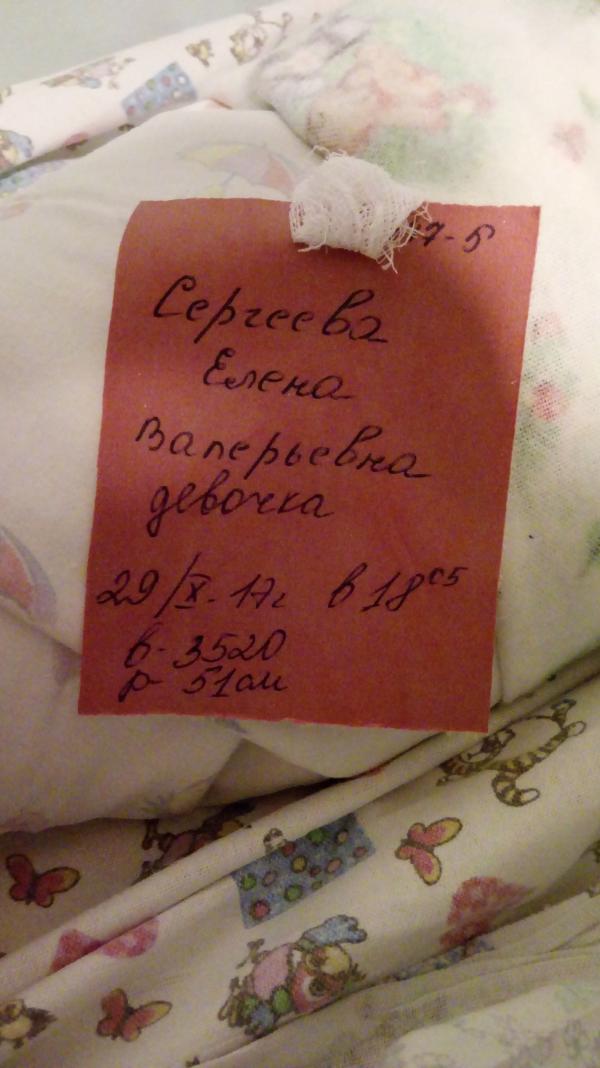 7-5
Сергеева
Елена
Валерьевна
девочка
29/X-17г в 18 05
в- 3520
р- 51см